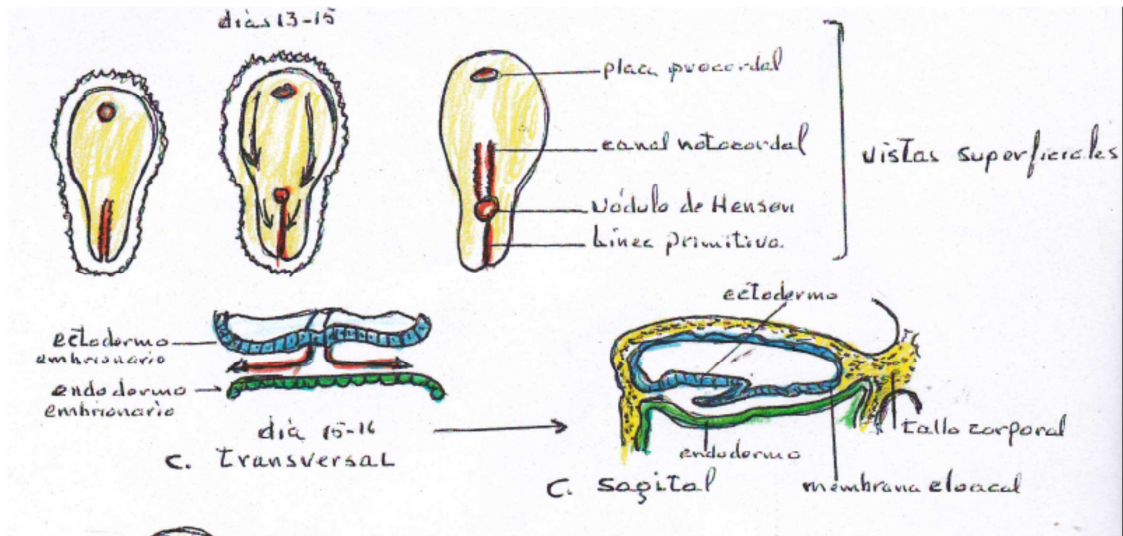 días 13-15
placa procordal
canal notocordal
Nódulo de Henson
Línea primitiva
vistas superficiales
ectodermo
embrionario
endodermo
embrionario
día 15-16
c. transversal
ectodermo
endodermo
tallo corporal
membrana cloacal
c. sagital